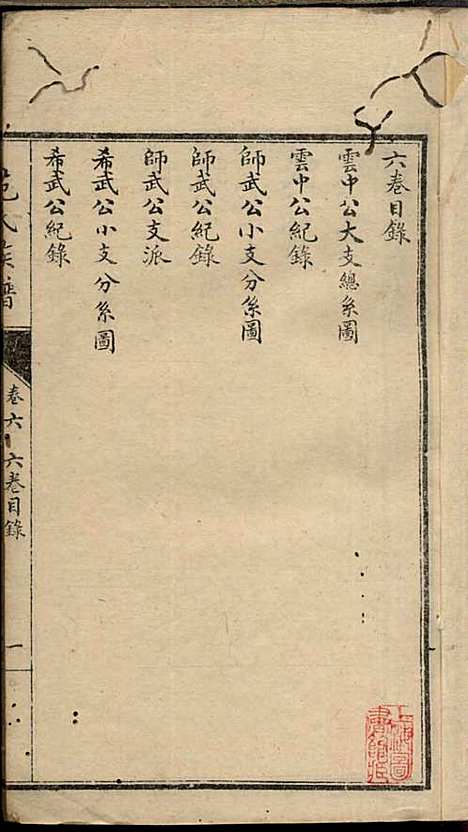 六卷目錄
雲中公大支總系圖
雲中公紀錄
師武公小支分系圖
師武公紀錄
師武公支派
希武公小支分系圖
希武公紀錄
氏族譜
卷六
六卷目錄
一
上海圖
書館藏